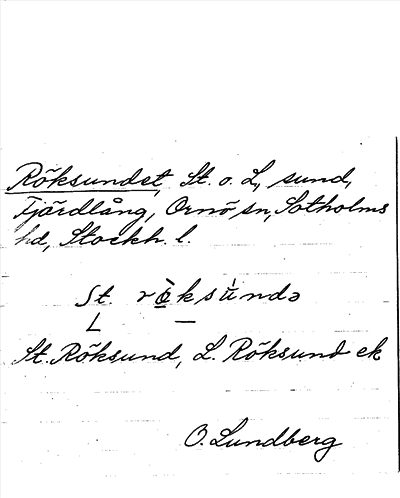 Röksundet, St. o. L., sund,
Fjärdlång, Ornö sn, Sotholms
hd, Stockh. l.
St. rö̀ksǘndə
L —
St. Röksund, L. Röksund ek
O. Lundberg